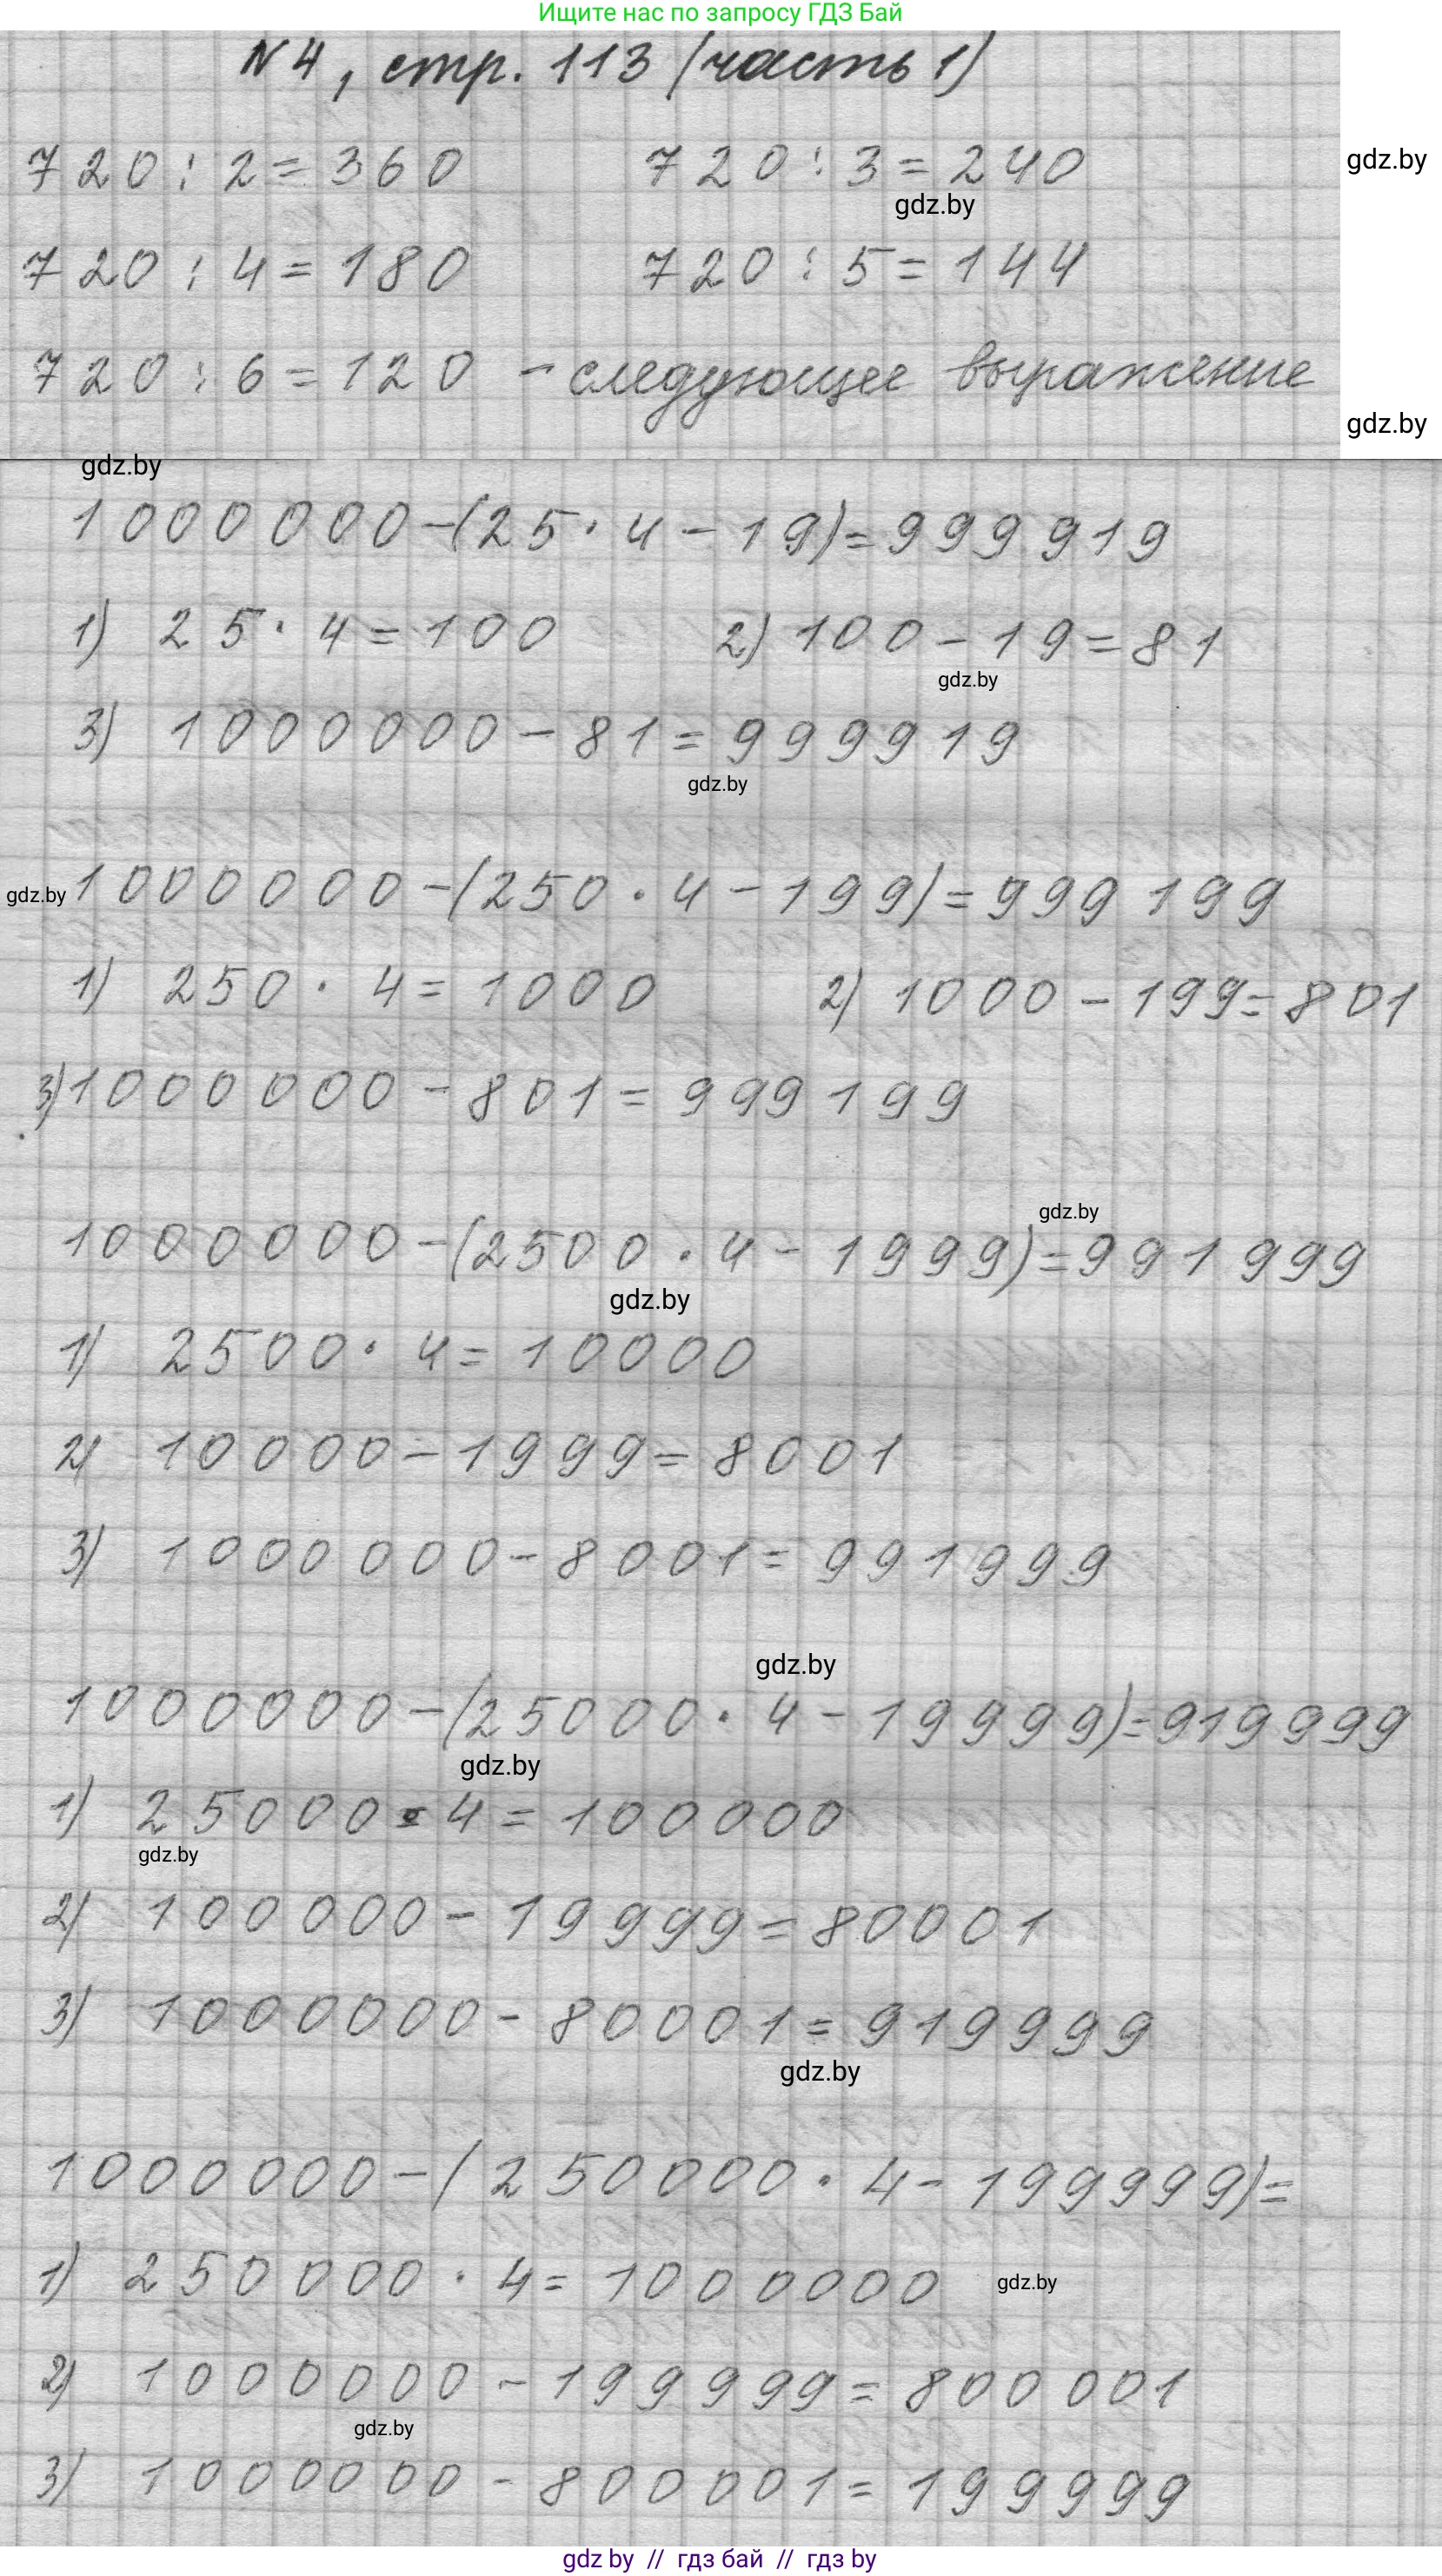 Ищите нас по запросу ГДЗ Бай
N 4, стр. 113 (часть 1)
720 : 2 = 360 720 : 3 = 240
gdz.by
gdz.by
720 : 4 = 180 720 : 5 = 144
720 : 6 = 120 - следующее выражение
gdz.by
gdz.by
1000000-(25·4-19)=999919
1) 25·4=100 2) 100-19=81
gdz.by
3) 1000000-81=999919
gdz.by
gdz.by
1000000-(250·4-199)=999199
1) 250·4=1000 2) 1000-199=801
3) 1000000-801=999199
gdz.by
1000000-(2500·4-1999)=991999
gdz.by
1) 2500·4=10000
2) 10000-1999=8001
3) 1000000-8001=991999
gdz.by
1000000-(25000·4-19999)=919999
gdz.by
1) 25000·4=100000
gdz.by
2) 100000-19999=80001
3) 1000000-80001=919999
gdz.by
1000000-(250000·4-199999)=
1) 250000·4=1000000
gdz.by
2) 1000000-199999=800001
gdz.by
3) 1000000-800001=199999
gdz by // гдз бай // гдз by